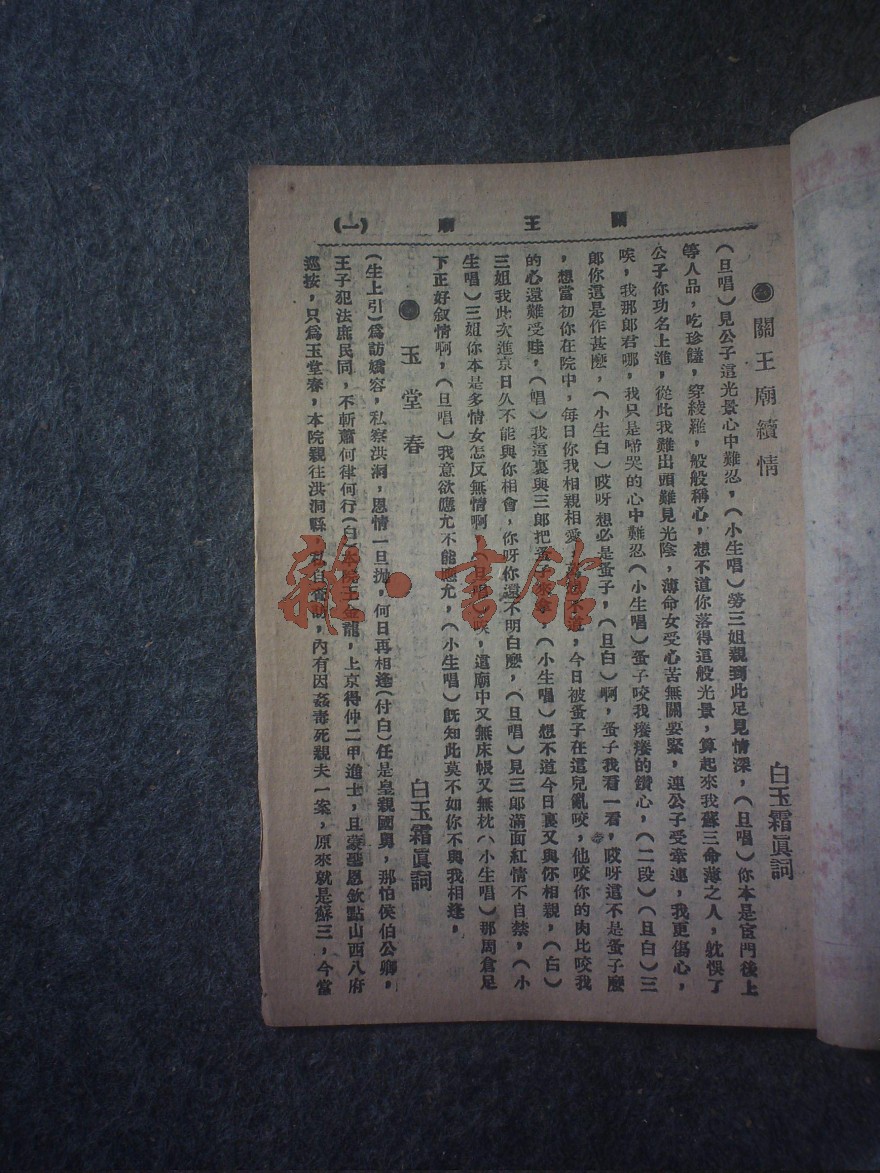 關王廟 (一)
關王廟續情
白玉霜眞詞
(旦唱)見公子這光景心中難忍,(小生唱)勞三姐親到此足見情深,(旦唱)你本是宦門後上
等人品,吃珍饈,穿綾羅,般般稱心,想不道你落得這般光景,算起來我蘇三命薄之人,躭悞了
公子你功名上進,從此我難出頭難見光陰,薄命女受心苦無關要緊,連公子受牽連,我更傷心,
唉,我那郎君哪,我只是啼哭的心中難忍(小生唱)蚤子咬我癢癢的鑽心,(二段)(旦白)三
郎你這是作甚麽,(小生白)哎呀想必是蚤子,(旦白)啊,蚤子我看一看,哎呀這不是蚤子麽
,想當初你在院中,每日你我相親相愛,想不道,今日被蚤子在這兒亂咬,他咬你的肉比咬我
的心還難受哇,(唱)我這裏與三郎把蚤子來拿,(小生唱)想不道今日裏又與你相親,(白)
三姐我此次進京日久不能與你相會,你呀你還不明白麽,(旦唱)見三郎滿面紅情不自禁,(小
生唱)三姐你本是多情女怎反無情啊,(旦唱)唉,這廟中又無床帳又無枕(小生唱)那周倉足
下正好叙情啊,(旦唱)我意欲應允不能應允,(小生唱)旣知此莫不如你不與我相逢,
玉堂春
白玉霜眞詞
(生上引)爲訪嬌容,私察洪洞,恩情一旦拋,何日再相逢(付白)任是皇親國舅,那怕侯伯公卿,
王子犯法庶民同,不斬蕭何律何行(白)本院王金龍,上京得仲二甲進士,且蒙聖恩欽點山西八府
巡按,只爲玉堂春,本院親往洪洞縣,私自查訪,內有因姦毒死親夫一案,原來就是蘇三,今當
雜·書館